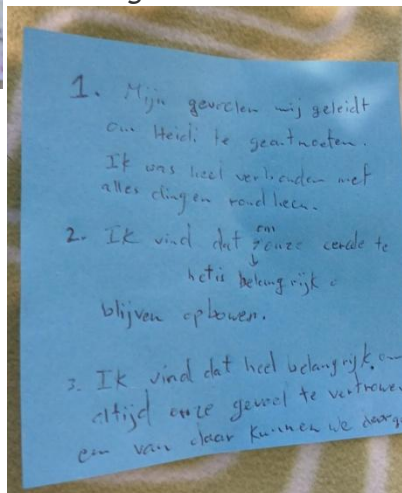 1. Mijn gevoelen mij geleidt
om Heidi te geatmoeten.
Ik was heel verbonden met
alles dingen rond heen.
2. Ik vind dat om onze cercle te
het is belangrijk
blijven opbowen.
3. Ik vind dat heel belangrijk om
altijd onze gevoel te vertrowe
em van daar kunnen we doorg